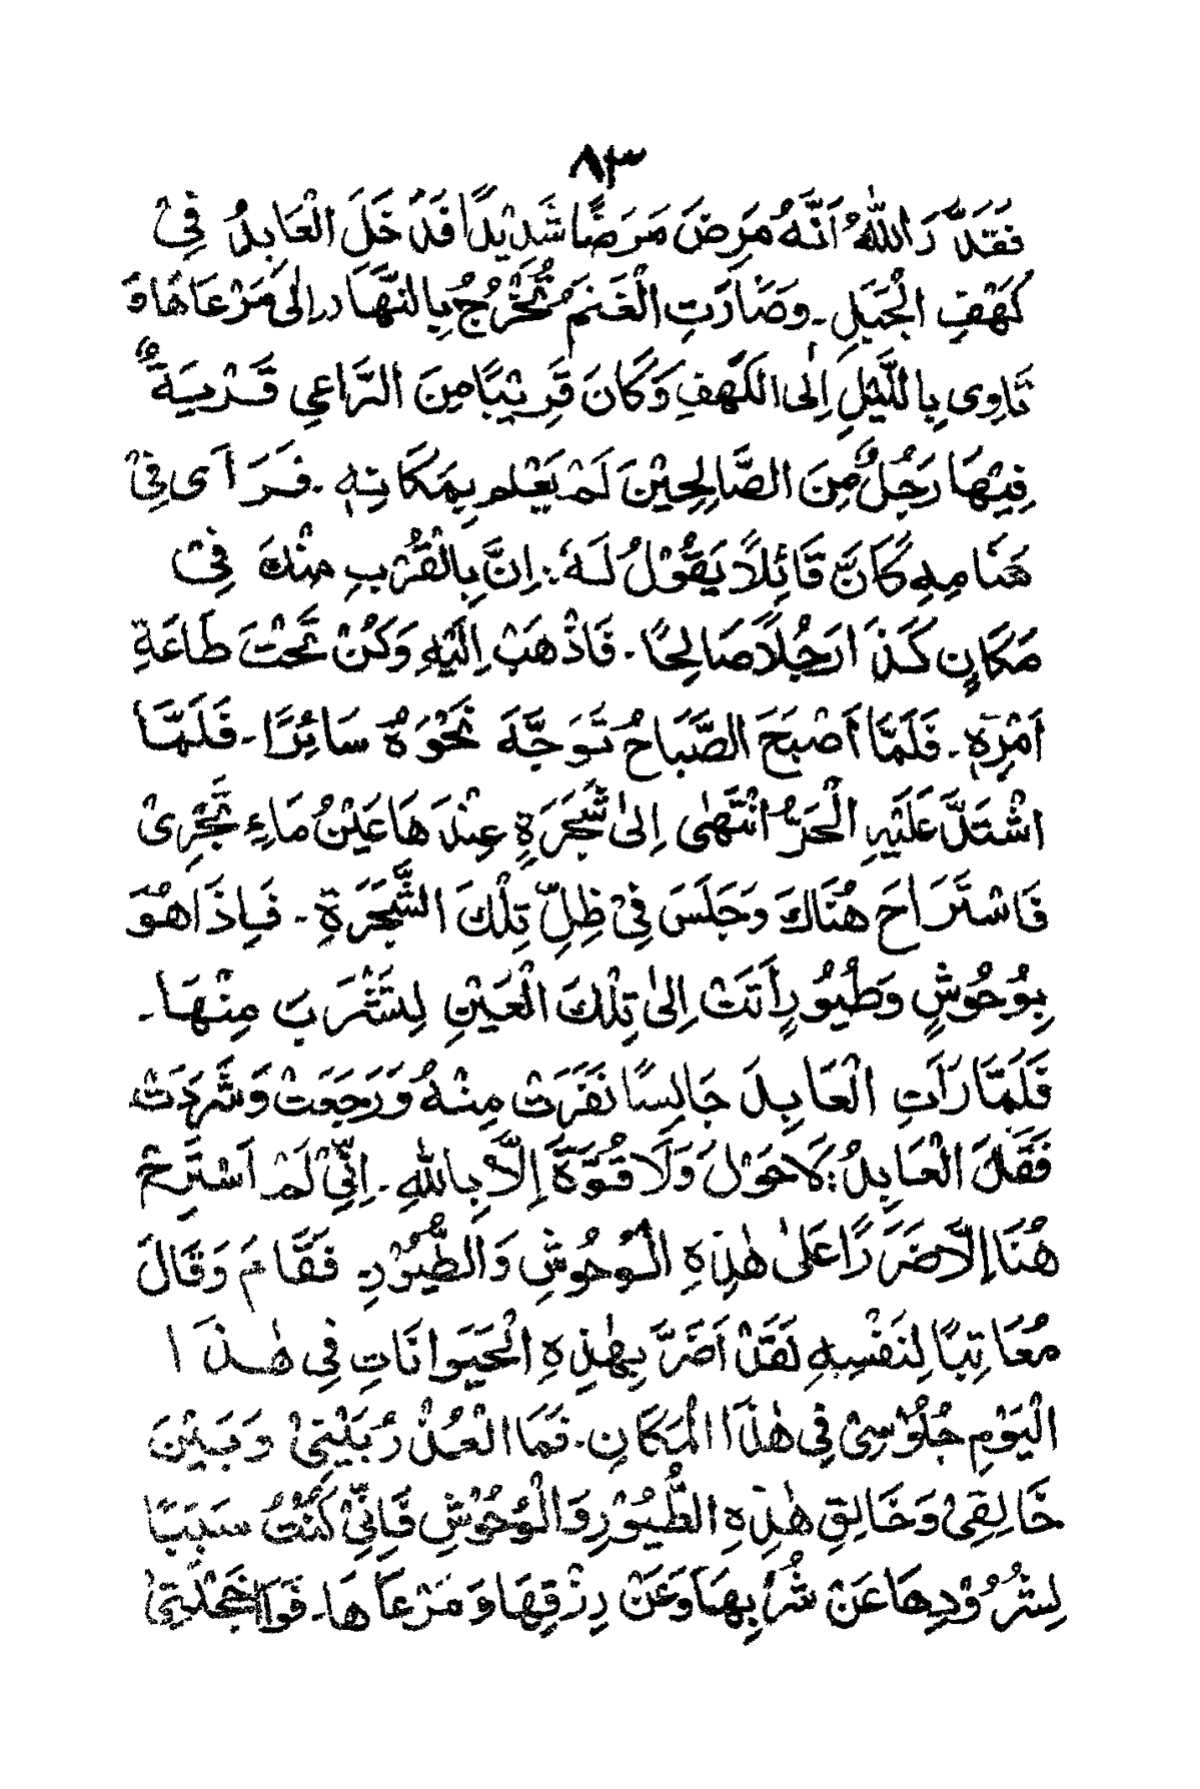 ٨٣
فَقَدَّرَ اللّٰهُ اَنَّهُ مَرِضَ مَرَضًا شَدِيْدًا فَدَخَلَ الْعَابِدُ فِيْ
كَهْفِ الْجَبَلِ۔ وَصَارَتِ الْغَنَمُ تَخْرُجُ بِالنَّهَارِ اِلٰى مَرْعَاهَا وَ
تَاوِى بِاللَّيْلِ اِلَى الْكَهْفِ وَكَانَ قَرِيْبًا مِنَ الرَّاعِى قَرْيَةٌ
فِيْهَا رَجُلٌ مِنَ الصَّالِحِيْنَ لَمْ يَعْلَمْ بِمَكَانِهٖ۔ فَرَاَى فِيْ
مَنَامِهِ كَاَنَّ قَائِلًا يَقُوْلُ لَهٗ: اِنَّ بِالْقُرْبِ مِنْكَ فِيْ
مَكَانِ كَذَا رَجُلًا صَالِحًا۔ فَاذْهَبْ اِلَيْهِ وَكُنْ تَحْتَ طَاعَةِ
اَمْرِهٖ۔ فَلَمَّا اَصْبَحَ الصَّبَاحُ تَوَجَّهَ نَحْوَهُ سَائِرًا۔ فَلَمَّا
اشْتَدَّ عَلَيْهِ الْحَرُّ انْتَهٰى اِلٰى شَجَرَةٍ عِنْدَهَا عَيْنُ مَاءٍ تَجْرِىْ
فَاسْتَرَاحَ هُنَاكَ وَجَلَسَ فِىْ ظِلِّ تِلْكَ الشَّجَرَةِ۔ فَاِذَا هُوَ
بِوُحُوْشٍ وَطُيُوْرٍ اَتَتْ اِلٰى تِلْكَ الْعَيْنِ لِتَشْرَبَ مِنْهَا۔
فَلَمَّا رَاَتِ الْعَابِدَ جَالِسًا نَفَرَتْ مِنْهُ وَرَجَعَتْ وَشَرَدَتْ
فَقَالَ الْعَابِدُ: لَاحَوْلَ وَلَا قُوَّةَ اِلَّا بِاللّٰهِ۔ اِنِّيْ لَمْ اَسْتَرِحْ
هُنَا اِلَّا ضَرَرًا عَلٰى هٰذِهِ الْوُحُوْشِ وَالطُّيُوْرِ۔ فَقَامَ وَقَالَ
مُعَاتِبًا لِنَفْسِهِ لَقَدْ اَضَرَّ بِهٰذِهِ الْحَيَوَانَاتِ فِى هٰذَا
الْيَوْمِ جُلُوْسِىْ فِى هٰذَا الْمَكَانِ۔ فَمَا الْعُذْرُ بَيْنِىْ وَبَيْنَ
خَالِقِىْ وَخَالِقِ هٰذِهِ الطُّيُوْرِ وَالْوُحُوْشِ فَاِنِّىْ كُنْتُ سَبَبًا
لِشُرُوْدِهَا عَنْ شُرْبِهَا وَعَنْ رِزْقِهَا وَمَرْعَاهَا۔ فَوَاخَجْلَتِىْ